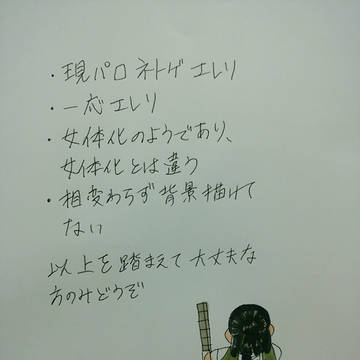 ・現パロ ネトゲ エレリ
・一応 エレリ
・女体化のようであり、
女体化とは違う
・相変わらず背景描けて
ない
以上を踏まえて大丈夫な
方のみどうぞ